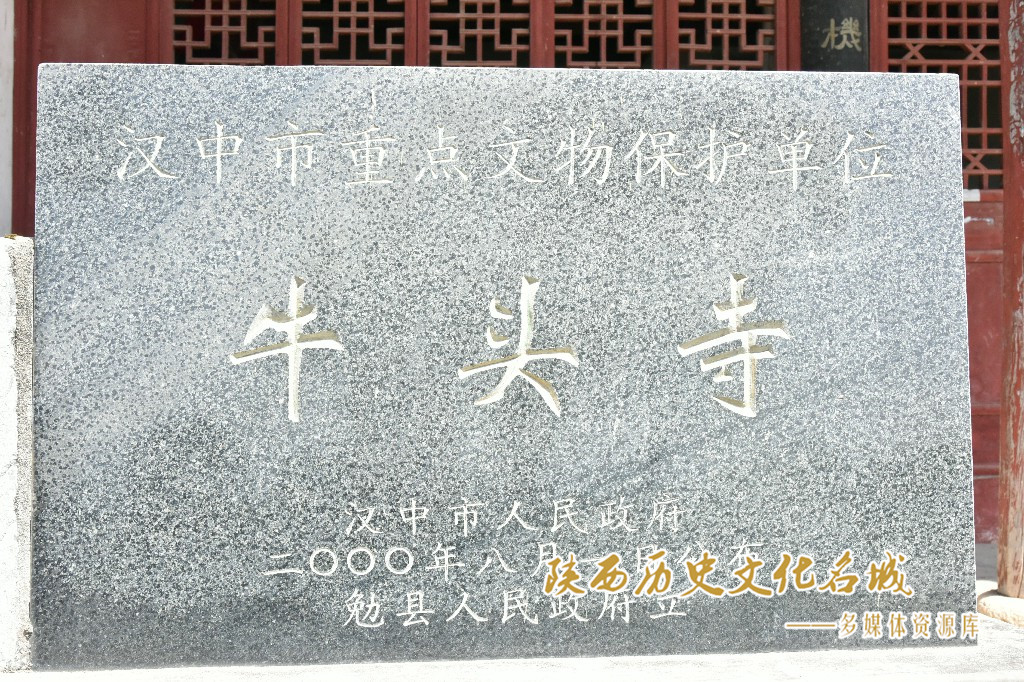 機
汉中市重点文物保护单位
牛头寺
汉中市人民政府
二〇〇〇年八月
勉县人民政府立
陕西历史文化名城
——多媒体资源库